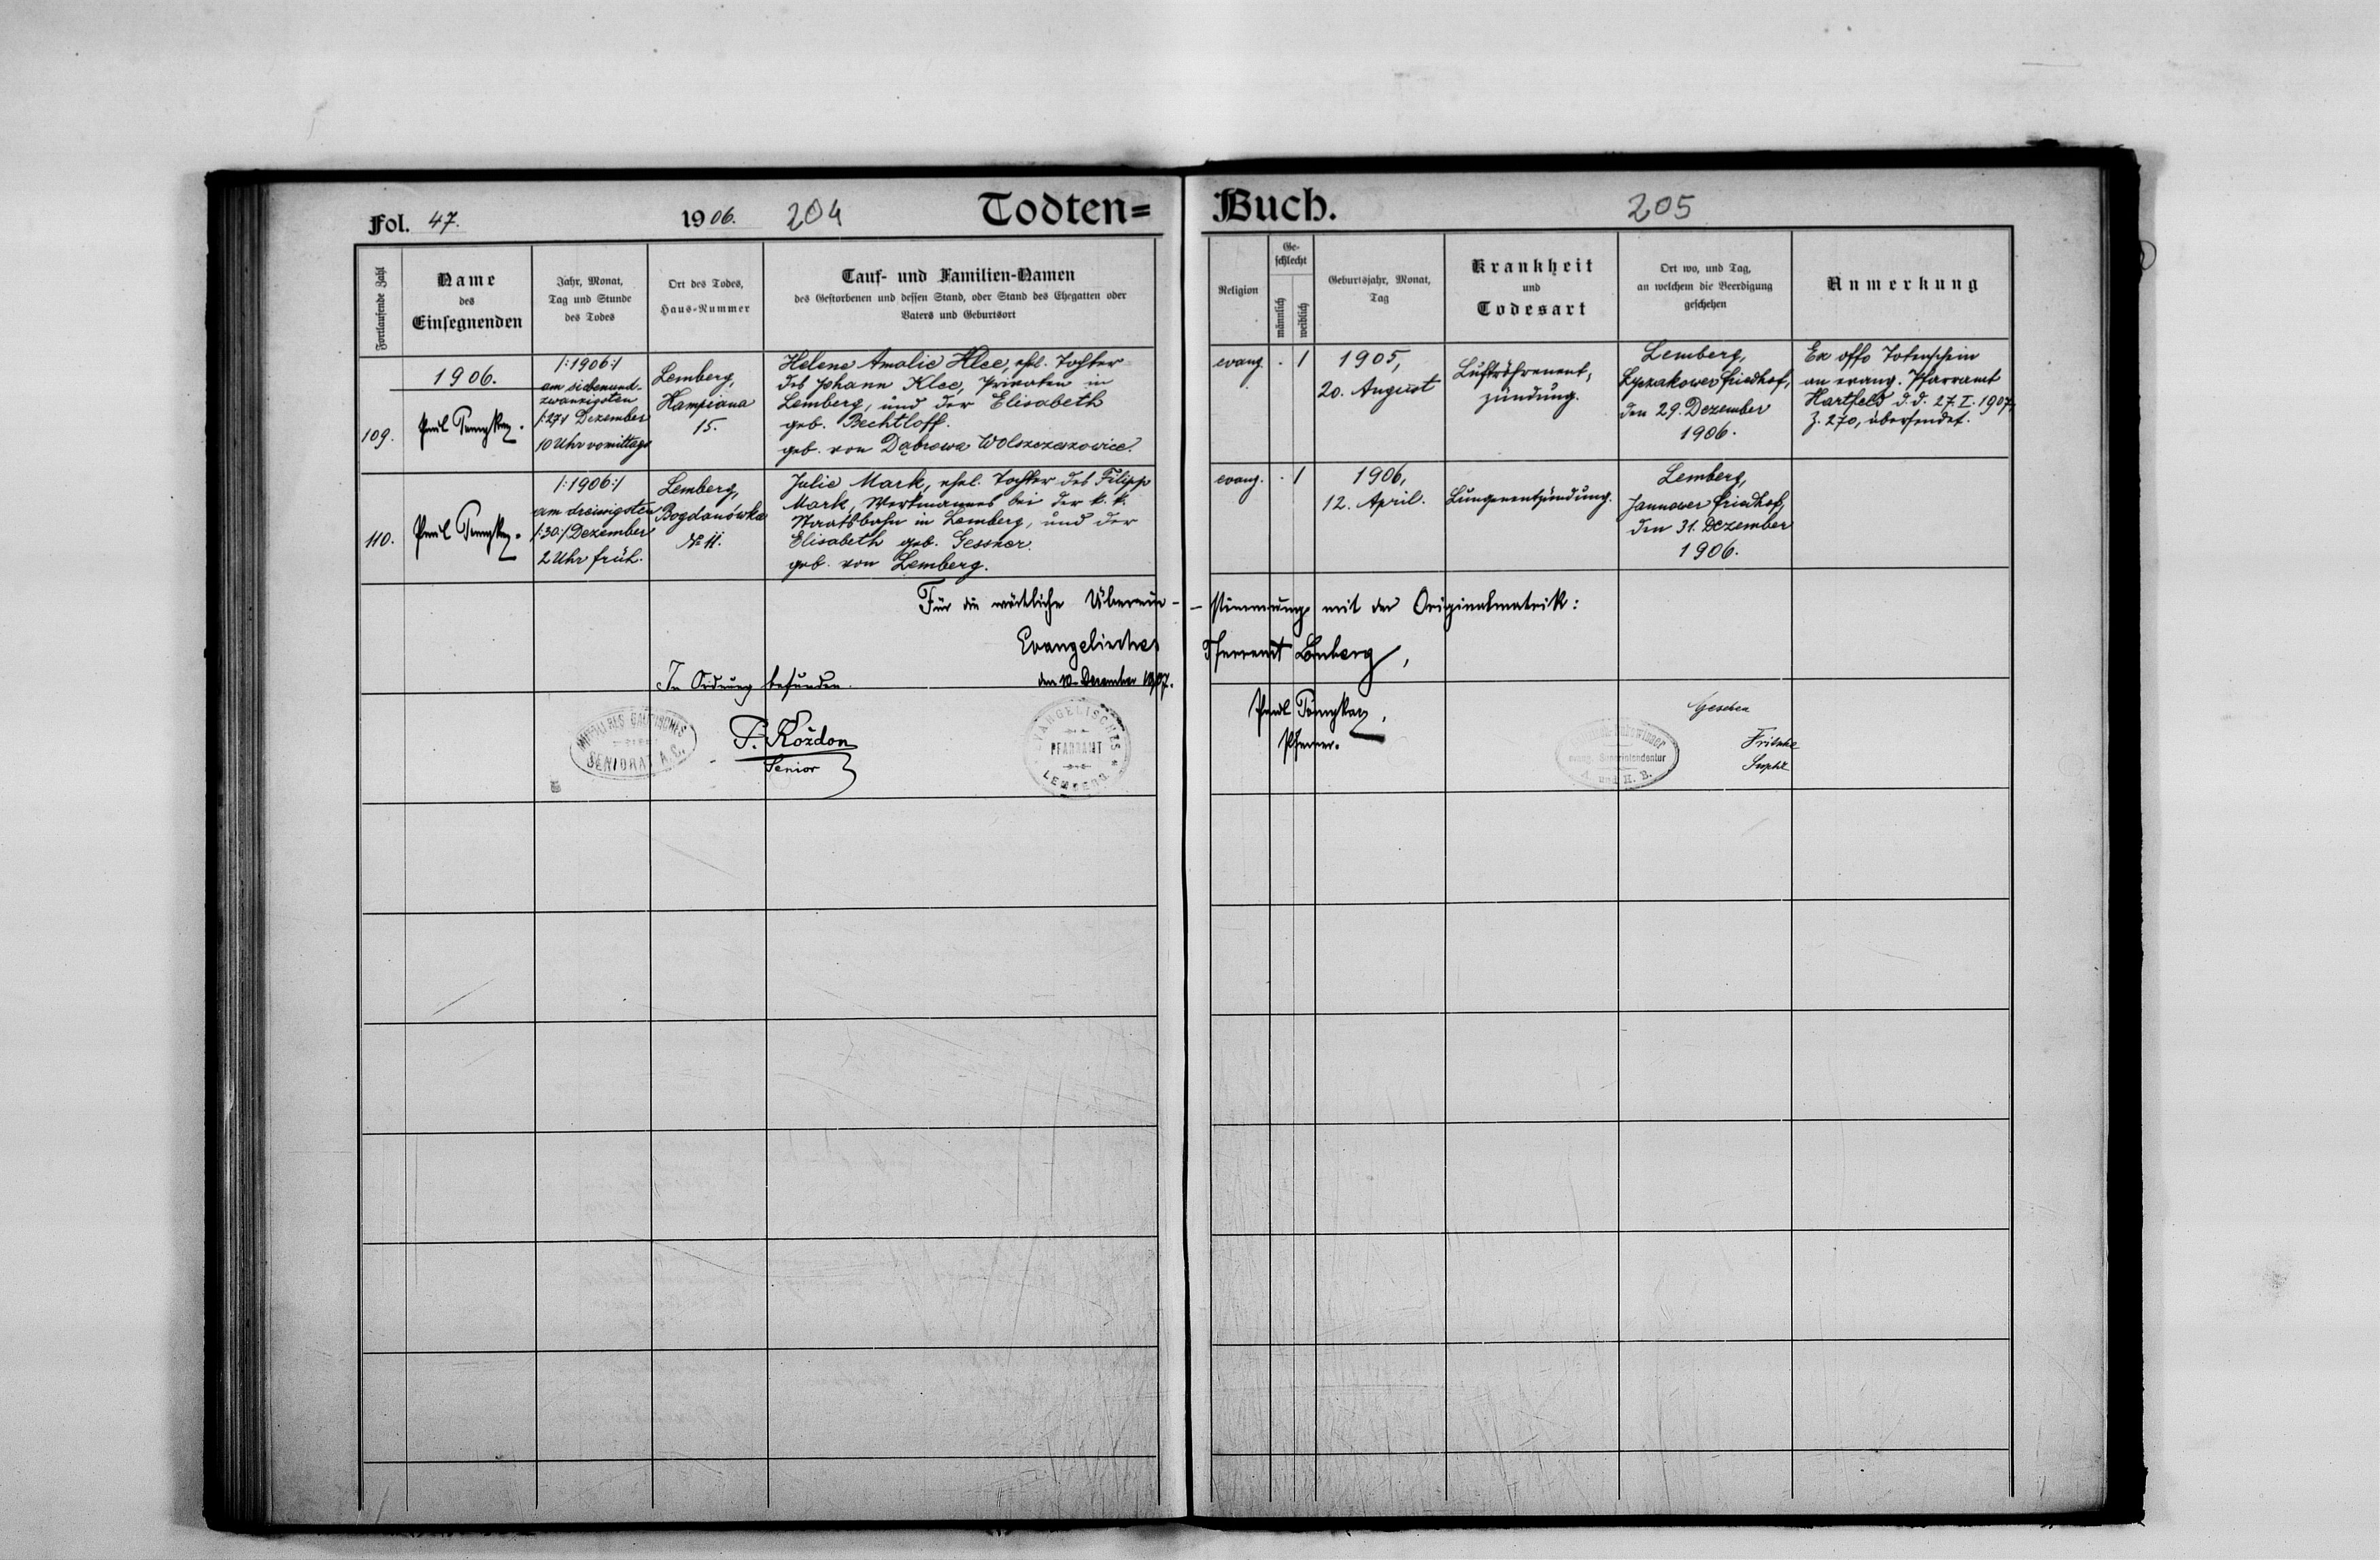 Fol. 47.
1906.
204
Todten=
Buch.
205
Fortlaufende Zahl
Name
des
Einsegnenden
Jahr, Monat,
Tag und Stunde
des Todes
Ort des Todes,
Haus-Nummer
Tauf- und Familien-Namen
des Gestorbenen und dessen Stand, oder Stand des Ehegatten oder
Vaters und Geburtsort
Religion
Ge-
schlecht
männlich
weiblich
Geburtsjahr, Monat,
Tag
Krankheit
und
Todesart
Ort wo, und Tag,
an welchem die Beerdigung
geschehen
Anmerkung
1906.
109.
Paul
/:1906:/
am siebenund-
zwanzigsten
/:27:/ Dezember
10 Uhr vormittags
Lemberg,
Hampiana
15.
Helene Amalie Klee, ehel. Tochter
des Johann Klee, Privaten in
Lemberg, und der Elisabeth
geb. Bechtloff.
geb. von Dąbrowa Wolszczazowice.
evang. . 1
1905,
20. August
Luftröhrenent-
zündung.
Lemberg,
Łyczakower Friedhof,
den 29. Dezember
1906.
Ex offo Totenschein
an evang. Pfarramt
Hartfeld d. d. 27. I. 1907,
Z. 270, übersendet.
110.
Paul
/:1906:/
am dreissigsten
/:30:/ Dezember
2 Uhr früh.
Lemberg,
Bogdanówka
No 11.
Julie Mark, ehel. Tochter des Filipp
Mark, Werkmannes bei der k. k.
Staatsbahn in Lemberg, und der
Elisabeth geb. Gessner.
geb. von Lemberg.
evang. . 1
1906,
12. April.
Lungenentzündung.
Lemberg,
Janower Friedhof,
den 31. Dezember
1906.
Für die wörtliche Überein- - stimmung mit der Originalmatrik:
Evangelisches Pfarramt Lemberg,
In Ordnung befunden.
den 10. Dezember 1907.
P. Roždon
Senior
SENIORAT A. C.
EVANGELISCHES
PFARRAMT
LEMBERG
Paul
Pfarrer.
evang. Superintendentur
A. und H. B.
Gesehen
Fritsche
Supdt